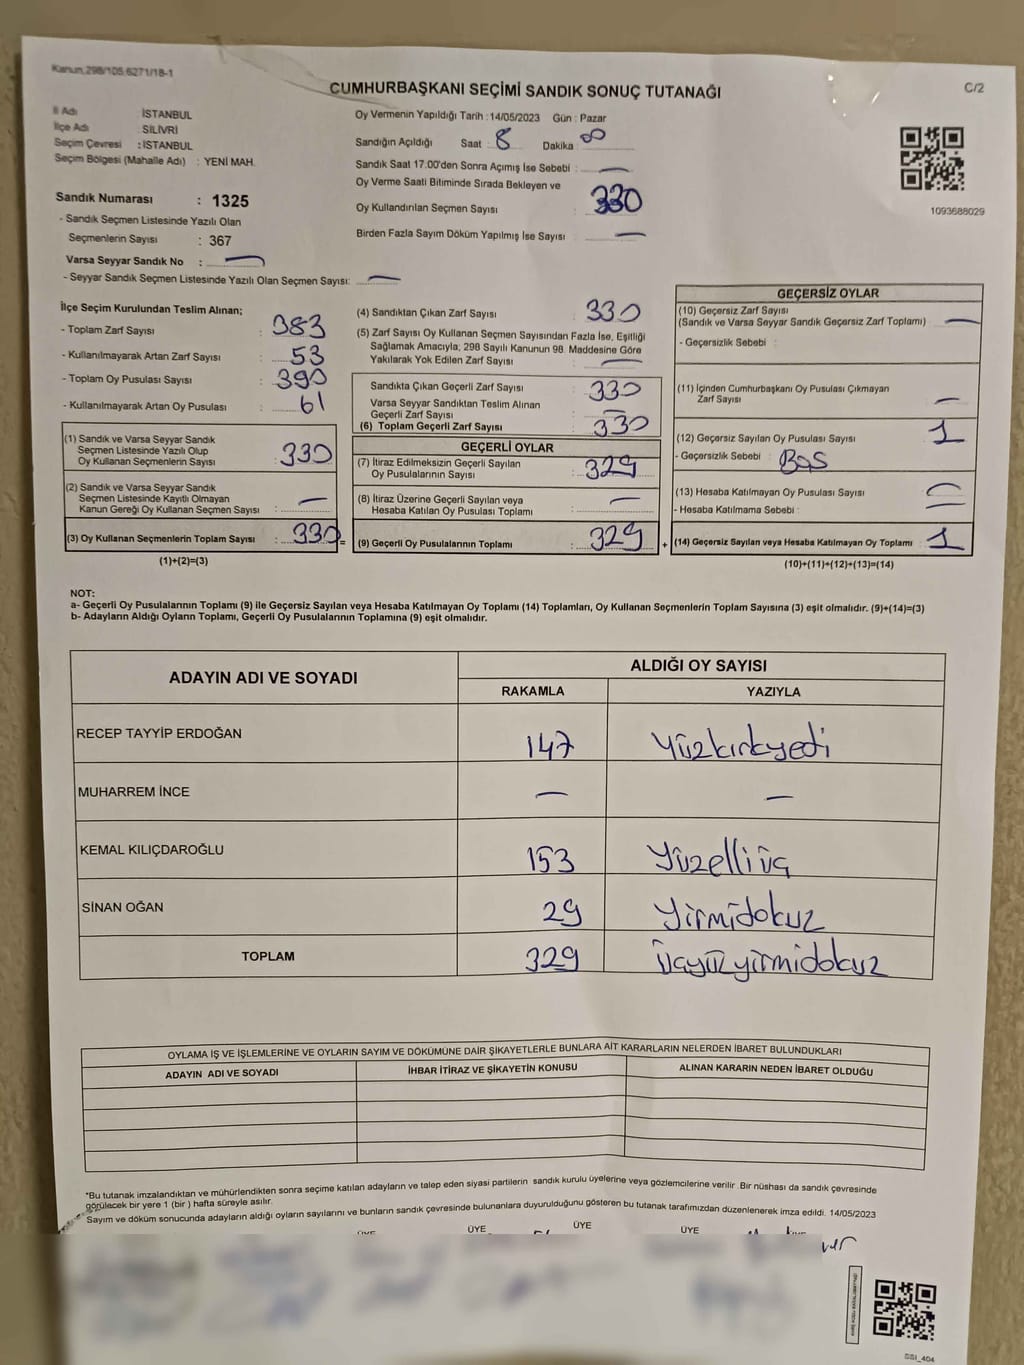 Kanun,298/105,6271/18-1
CUMHURBAŞKANI SEÇİMİ SANDIK SONUÇ TUTANAĞI
C/2
İl Adı İSTANBUL
İlçe Adı : SİLİVRİ
Seçim Çevresi : İSTANBUL
Seçim Bölgesi (Mahalle Adı) : YENİ MAH.
Sandık Numarası : 1325
- Sandık Seçmen Listesinde Yazılı Olan
Seçmenlerin Sayısı : 367
Varsa Seyyar Sandık No : —
- Seyyar Sandık Seçmen Listesinde Yazılı Olan Seçmen Sayısı: —
Oy Vermenin Yapıldığı Tarih : 14/05/2023 Gün : Pazar
Sandığın Açıldığı Saat 8 Dakika 00
Sandık Saat 17.00'den Sonra Açımış İse Sebebi : —
Oy Verme Saati Bitiminde Sırada Bekleyen ve
Oy Kullandırılan Seçmen Sayısı : 330
Birden Fazla Sayım Döküm Yapılmış İse Sayısı —
1093688029
İlçe Seçim Kurulundan Teslim Alınan;
- Toplam Zarf Sayısı : 383
- Kullanılmayarak Artan Zarf Sayısı : 53
- Toplam Oy Pusulası Sayısı : 390
- Kullanılmayarak Artan Oy Pusulası : 61
(1) Sandık ve Varsa Seyyar Sandık
Seçmen Listesinde Yazılı Olup
Oy Kullanan Seçmenlerin Sayısı : 330
(2) Sandık ve Varsa Seyyar Sandık
Seçmen Listesinde Kayıtlı Olmayan
Kanun Gereği Oy Kullanan Seçmen Sayısı : —
(3) Oy Kullanan Seçmenlerin Toplam Sayısı : 330
(1)+(2)=(3)
(4) Sandıktan Çıkan Zarf Sayısı : 330
(5) Zarf Sayısı Oy Kullanan Seçmen Sayısından Fazla İse, Eşitliği
Sağlamak Amacıyla; 298 Sayılı Kanunun 98. Maddesine Göre
Yakılarak Yok Edilen Zarf Sayısı : —
Sandıkta Çıkan Geçerli Zarf Sayısı : 330
Varsa Seyyar Sandıktan Teslim Alınan
Geçerli Zarf Sayısı : —
(6) Toplam Geçerli Zarf Sayısı : 330
GEÇERLİ OYLAR
(7) İtiraz Edilmeksizin Geçerli Sayılan
Oy Pusulalarının Sayısı : 329
(8) İtiraz Üzerine Geçerli Sayılan veya
Hesaba Katılan Oy Pusulası Toplamı : —
= (9) Geçerli Oy Pusulalarının Toplamı : 329
GEÇERSİZ OYLAR
(10) Geçersiz Zarf Sayısı
(Sandık ve Varsa Seyyar Sandık Geçersiz Zarf Toplamı) : —
- Geçersizlik Sebebi :
(11) İçinden Cumhurbaşkanı Oy Pusulası Çıkmayan
Zarf Sayısı : —
(12) Geçersiz Sayılan Oy Pusulası Sayısı : 1
- Geçersizlik Sebebi : Boş
(13) Hesaba Katılmayan Oy Pusulası Sayısı : —
- Hesaba Katılmama Sebebi : —
+ (14) Geçersiz Sayılan veya Hesaba Katılmayan Oy Toplamı : 1
(10)+(11)+(12)+(13)=(14)
NOT:
a- Geçerli Oy Pusulalarının Toplamı (9) ile Geçersiz Sayılan veya Hesaba Katılmayan Oy Toplamı (14) Toplamları, Oy Kullanan Seçmenlerin Toplam Sayısına (3) eşit olmalıdır. (9)+(14)=(3)
b- Adayların Aldığı Oyların Toplamı, Geçerli Oy Pusulalarının Toplamına (9) eşit olmalıdır.
ADAYIN ADI VE SOYADI ALDIĞI OY SAYISI
RAKAMLA YAZIYLA
RECEP TAYYİP ERDOĞAN 147 Yüzkırkyedi
MUHARREM İNCE — —
KEMAL KILIÇDAROĞLU 153 Yüzelliüç
SİNAN OĞAN 29 Yirmidokuz
TOPLAM 329 Üçyüzyirmidokuz
OYLAMA İŞ VE İŞLEMLERİNE VE OYLARIN SAYIM VE DÖKÜMÜNE DAİR ŞİKAYETLERLE BUNLARA AİT KARARLARIN NELERDEN İBARET BULUNDUKLARI
ADAYIN ADI VE SOYADI İHBAR İTİRAZ VE ŞİKAYETİN KONUSU ALINAN KARARIN NEDEN İBARET OLDUĞU
*Bu tutanak imzalandıktan ve mühürlendikten sonra seçime katılan adayların ve talep eden siyasi partilerin sandık kurulu üyelerine veya gözlemcilerine verilir .Bir nüshası da sandık çevresinde
görülecek bir yere 1 (bir ) hafta süreyle asılır.
Sayım ve döküm sonucunda adayların aldığı oyların sayılarını ve bunların sandık çevresinde bulunanlara duyurulduğunu gösteren bu tutanak tarafımızdan düzenlenerek imza edildi. 14/05/2023
ÜYE ÜYE ÜYE ÜYE